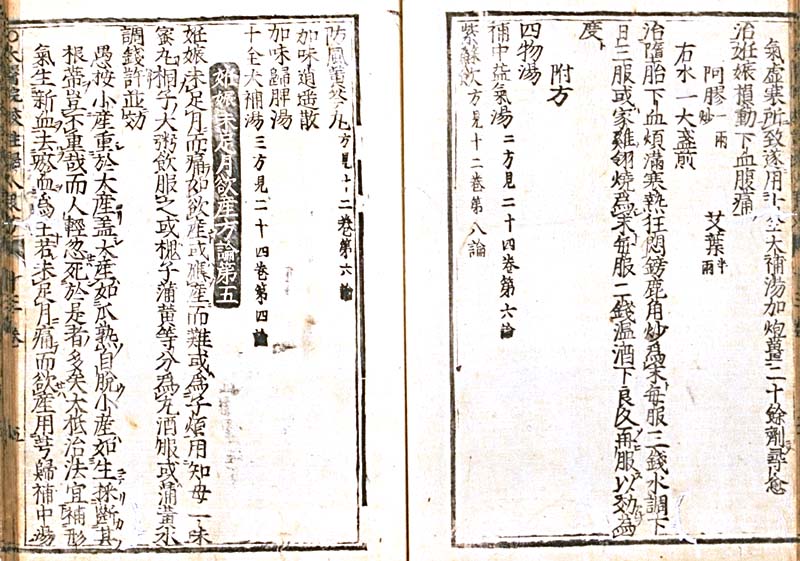 氣虛寒所致遂用十全大補湯加炮薑二十餘劑尋愈
治妊娠損動下血腹痛
阿膠炒一兩 艾葉半兩
右水一大盞煎
治墮胎下血煩滿寒熱狂悶鎊鹿角炒爲末每服三錢水調下
日三服或家雞翎燒爲末每服二錢溫酒下良久再服以効爲
度
附方
四物湯
補中益氣湯二方見二十四卷第六論
紫蘇飲方見十二卷第八論
防風黃芩丸方見十二卷第六論
加味逍遙散
加味歸脾湯
十全大補湯三方見二十四卷第四論
妊娠未足月欲産方論第五
妊娠未足月而痛如欲産或應産而難或爲子煩用知母一味
蜜丸梧子大粥飲服之或槐子蒲黃等分爲丸酒服或蒲黃水
調錢許並効
愚按小産重於大産盖大産如瓜熟自脫小産如生採斷其
根蒂豈不重哉而人輕忽死於是者多矣大低治法宜補形
氣生新血去瘀血爲主若未足月痛而欲産用芎歸補中湯